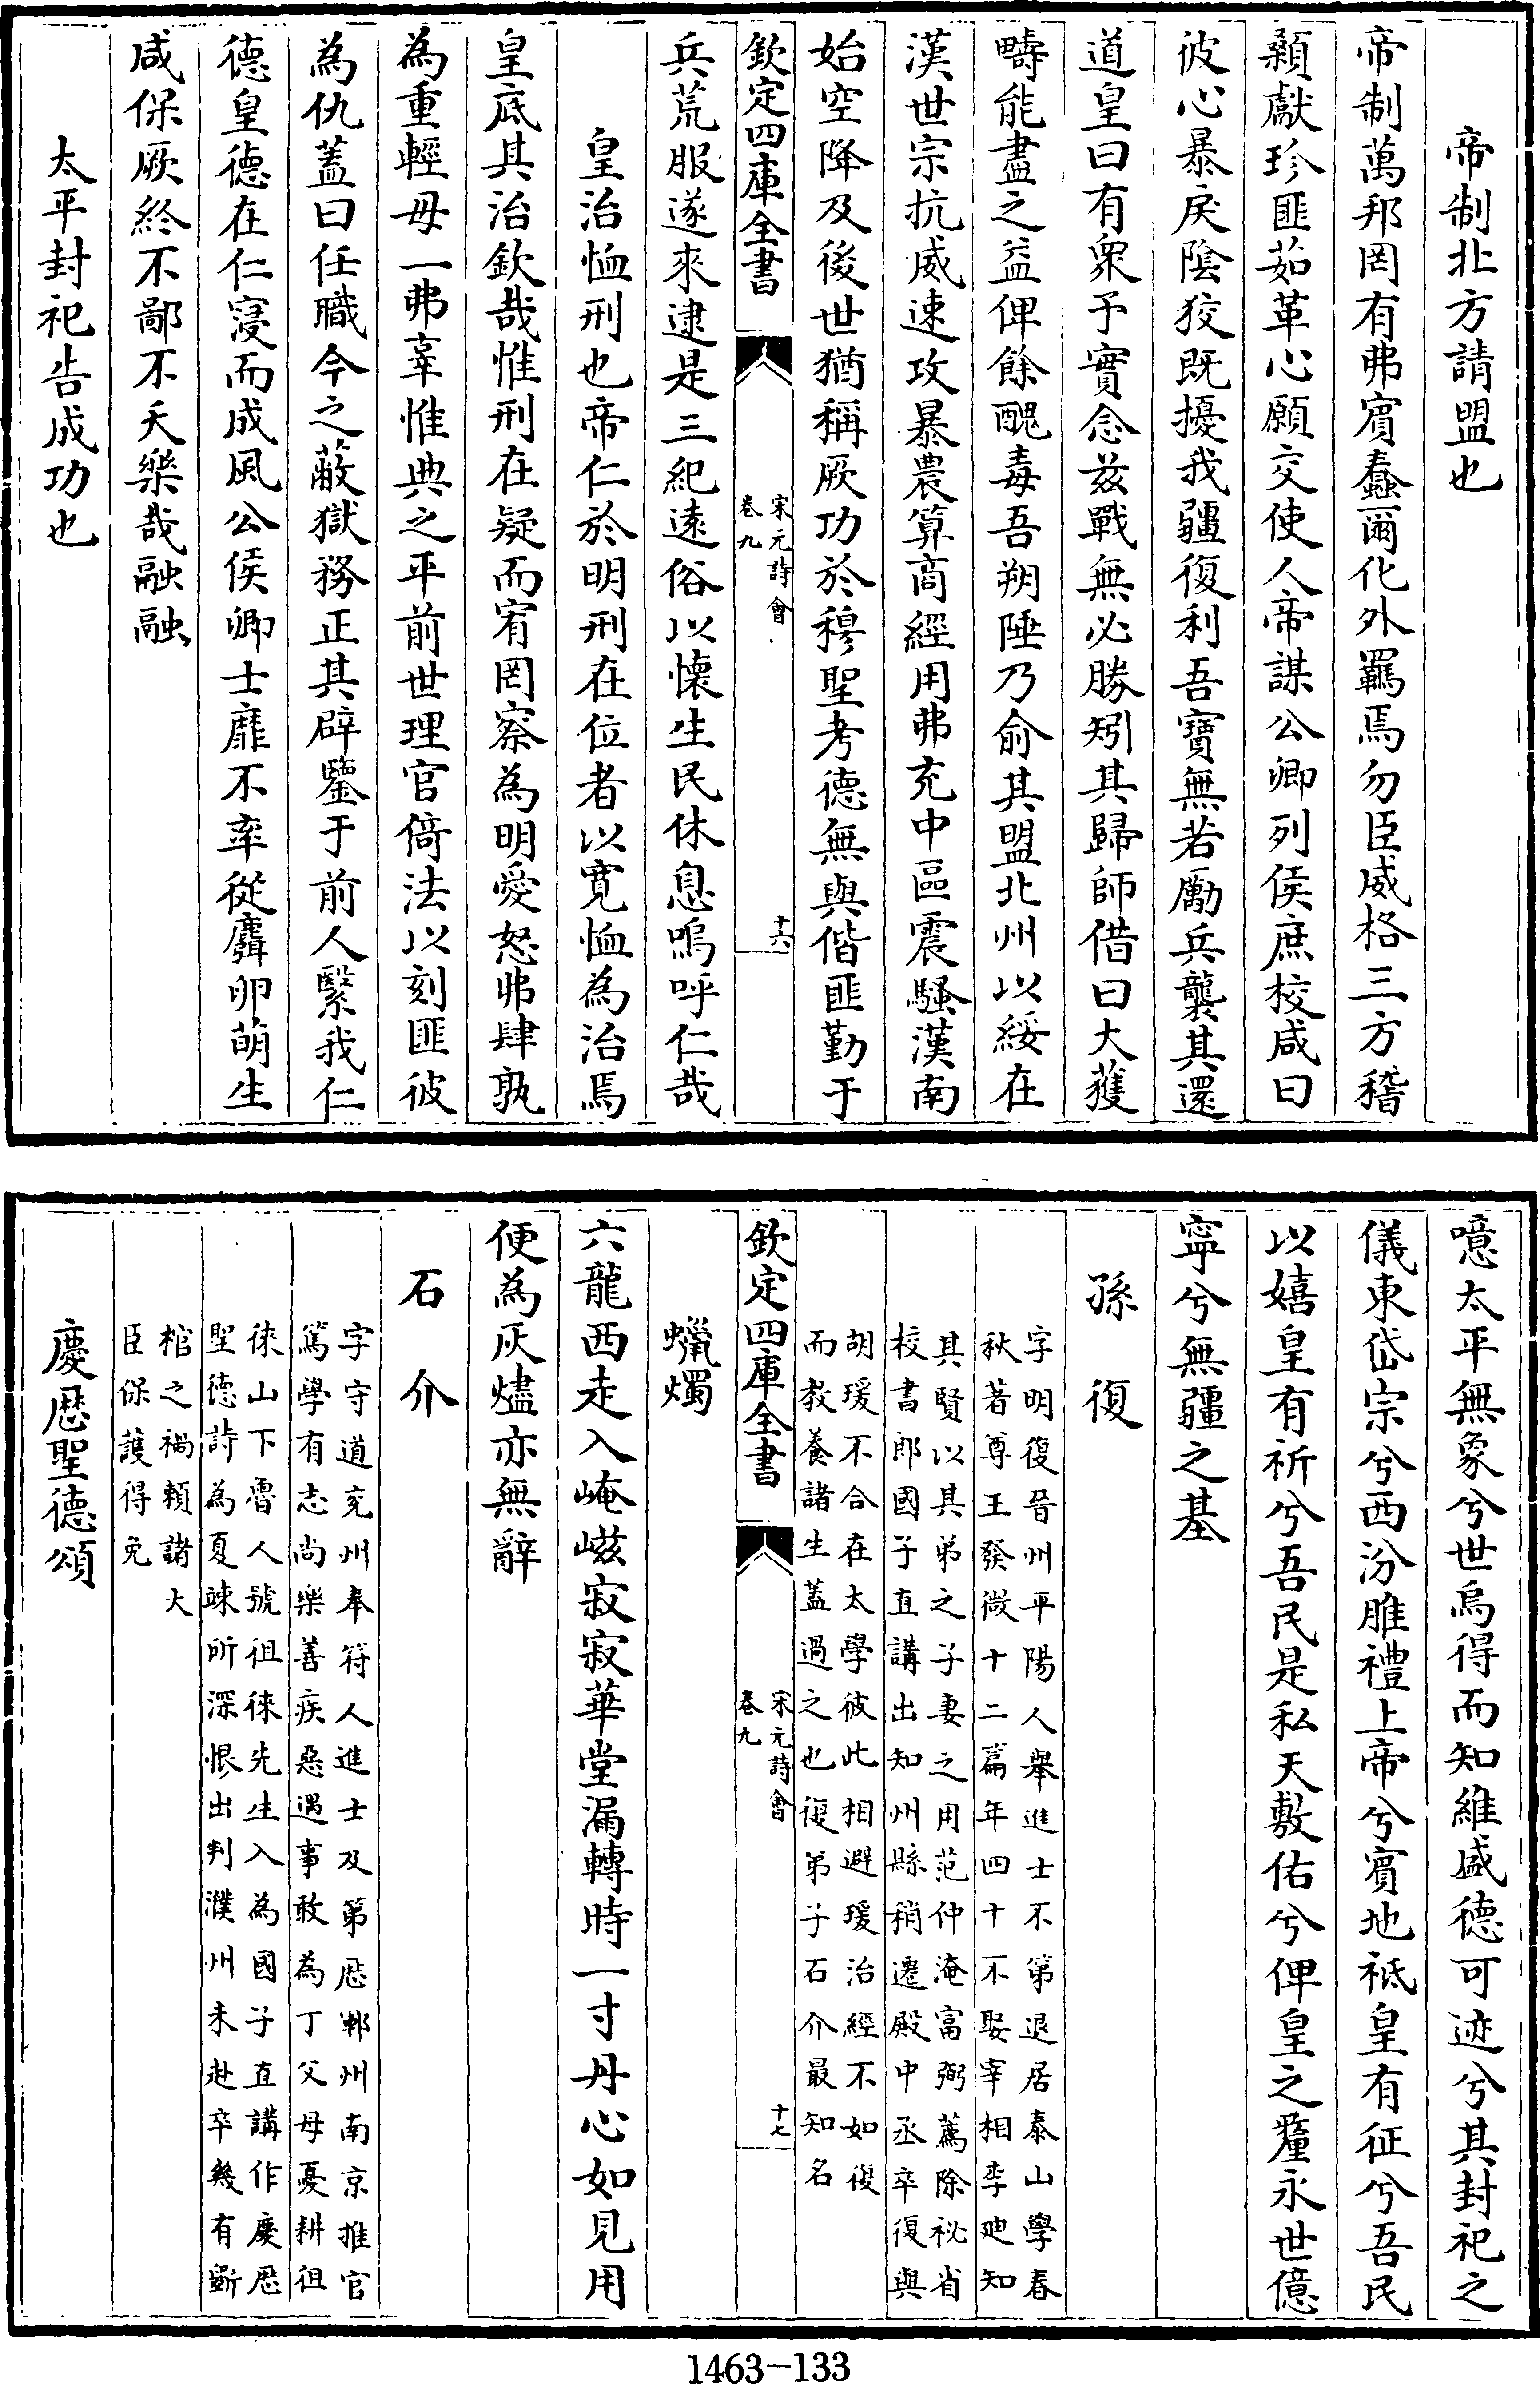 帝制北方請盟也
帝制萬邦罔有弗賓蠢爾化外羈焉勿臣威格三方稽
顙獻珍匪茹革心願交使人帝謀公卿列侯庶校咸曰
彼心暴戾陰狡既擾我疆復利吾寶無若勵兵襲其還
道皇曰有衆予實念兹戰無必勝矧其歸師借曰大獲
疇能盡之益俾餘醜毒吾朔陲乃俞其盟北州以綏在
漢世宗抗威速攻暴農算商經用弗充中區震騷漢南
始空降及後世猶稱厥功於穆聖考德無與偕匪勤于
欽定四庫全書
宋元詩會
卷九
十六
兵荒服遂來逮是三紀遠俗以懷生民休息嗚呼仁哉
皇治恤刑也帝仁於明刑在位者以寛恤為治焉
皇底其治欽哉惟刑在疑而宥罔察為明愛怒弗肆孰
為重輕毋一弗辜惟典之平前世理官倚法以刻匪彼
為仇蓋曰任職今之蔽獄務正其辟鑒于前人緊我仁
德皇德在仁寖而成風公侯卿士靡不率從麛卵萌生
咸保厥終不鄙不夭樂哉融融
太平封祀告成功也
噫太平無象兮世烏得而知維盛德可迹兮其封祀之
儀東岱宗兮西汾脽禮上帝兮賓地祗皇有征兮吾民
以嬉皇有祈兮吾民是私天敷佑兮俾皇之釐永世億
寧兮無疆之基
孫復
字明復晉州平陽人舉進士不第退居泰山學春
秋著尊王發微十二篇年四十不娶宰相李廸知
其賢以其弟之子妻之用范仲淹富弼薦除秘省
校書郎國子直講出知州縣稍遷殿中丞卒復與
胡瑗不合在太學彼此相避瑗治經不如復
而教養諸生蓋過之也復弟子石介最知名
欽定四庫全書
宋元詩會
卷九
十七
蠟燭
六龍西走入崦嵫寂寂華堂漏轉時一寸丹心如見用
便為灰燼亦無辭
石介
字守道兖州奉符人進士及第歴鄆州南京推官
篤學有志尚樂善疾惡遇事敢為丁父母憂耕徂
徠山下魯人號徂徠先生入為國子直講作慶歴
聖德詩為夏竦所深恨出判濮州未赴卒幾有斵
棺之禍賴諸大
臣保護得免
慶厯聖德頌
1463-133